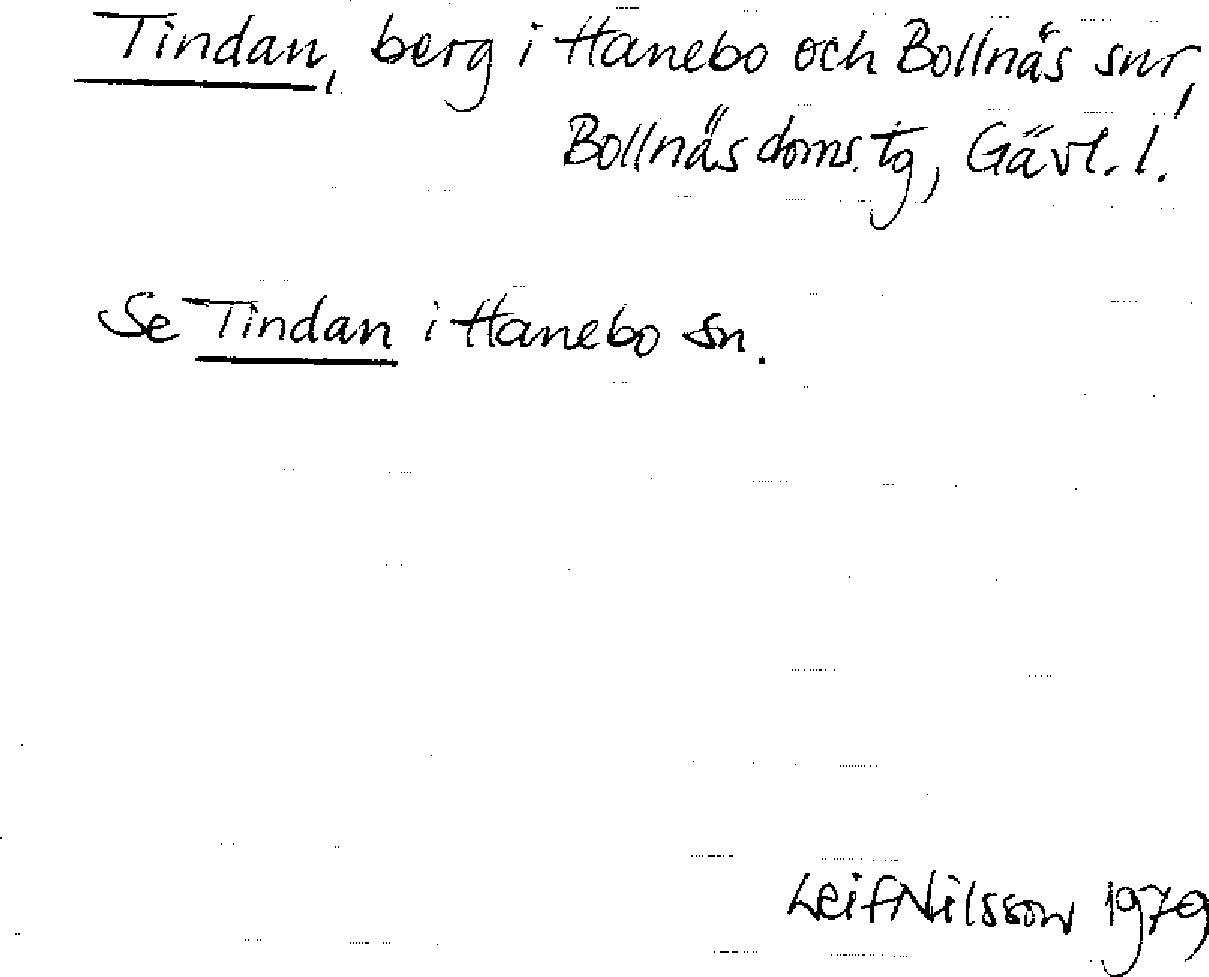 Tindan, berg i Hanebo och Bollnäs snr,
Bollnäs doms. tg, Gävl. l.
Se Tindan i Hanebo sn.
Leif Nilsson 1979